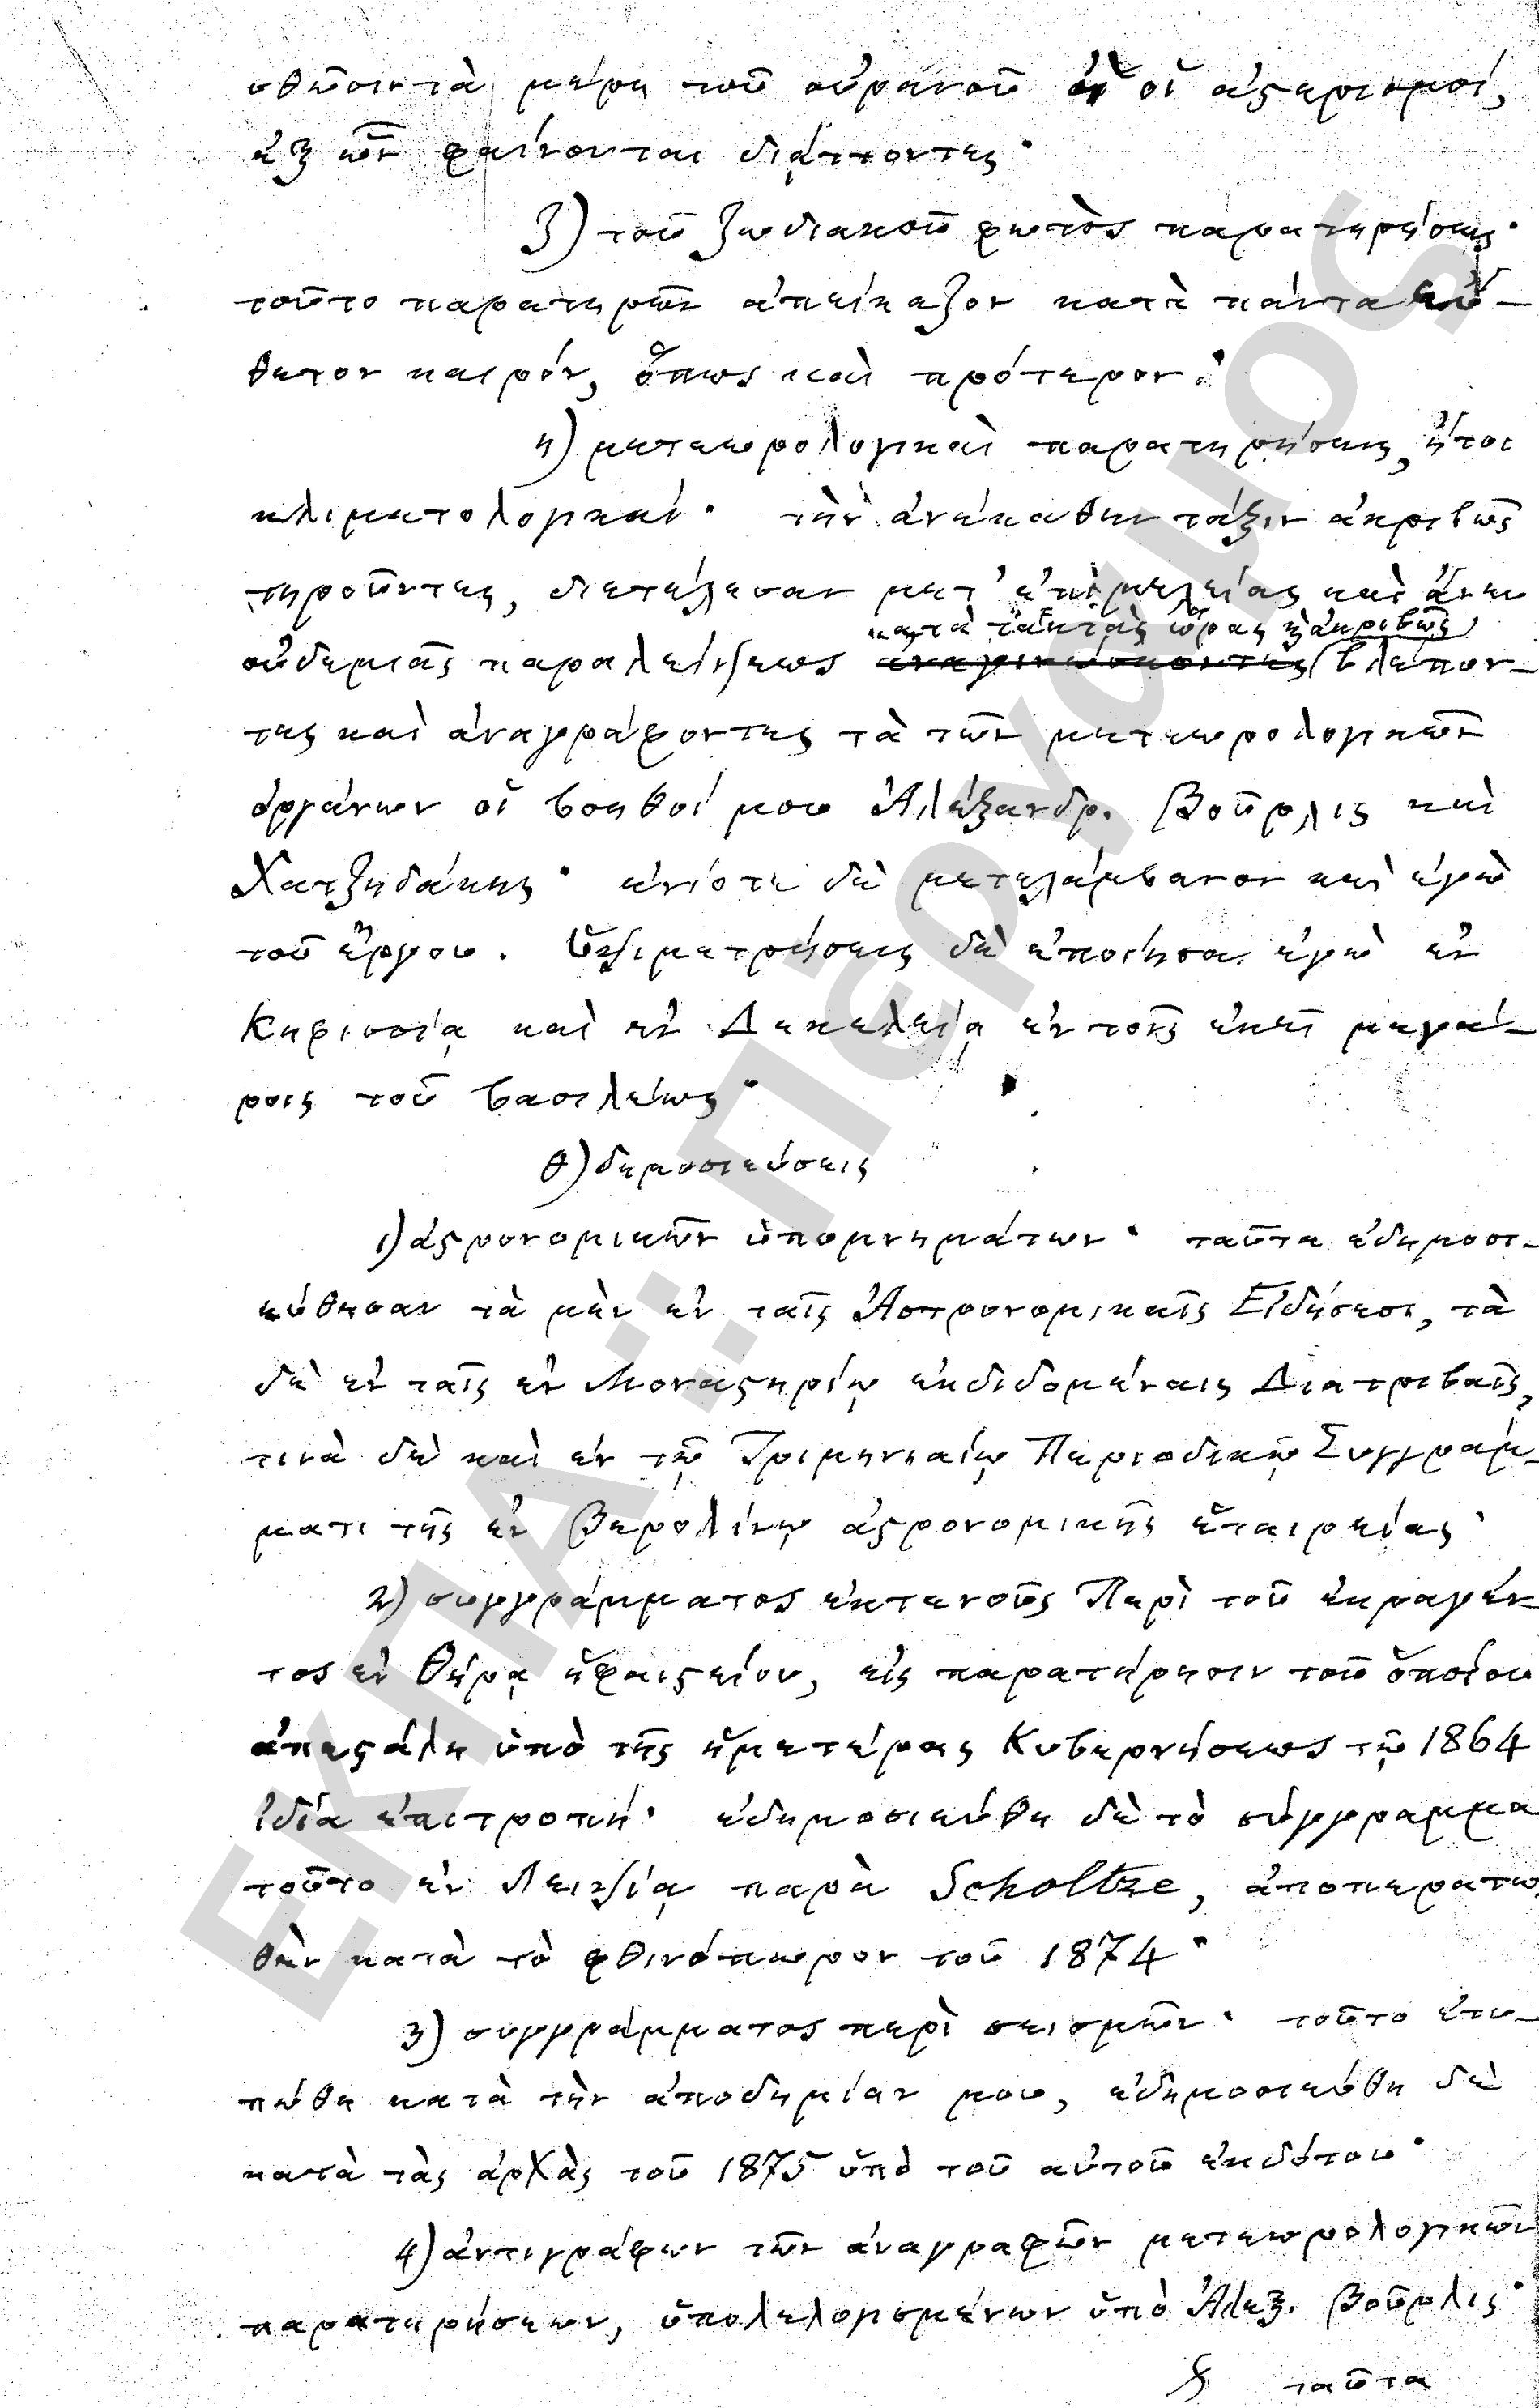 σθῶσι τὰ μέρη τοῦ οὐρανοῦ ἢ οἱ ἀςερισμοί,
ἐξ ὧν φαίνονται διᾴττοντες·
ζ) τοῦ ζωδιακοῦ φωτὸς παρατηρήσεις·
τοῦτο παρατηρῶν ἀπείκαζον κατὰ πάντα εὔ-
θετον καιρόν, ὅπως καὶ πρότερον·
η) μετεωρολογικαὶ παρατηρήσεις, ἤτοι
κλιματολογικαί· τὴν ἀνέκαθεν τάξιν ἀκριβῶς
τηροῦντες, διετέλεσαν μετ' ἐπιμελείας καὶ ἄνευ
κατὰ τακτὰς ὥρας ἀκριβῶς
οὐδεμιᾶς παραλείψεως ἀναγινώσκοντες βλέπον-
τες καὶ ἀναγράφοντες τὰ τῶν μετεωρολογικῶν
ὀργάνων οἱ βοηθοί μου Ἀλέξανδρ. Βούρλις καὶ
Χατζηδάκης· ἐνίοτε δὲ μετελάμβανον καὶ ἐγὼ
τοῦ ἔργου. Ὑψιμετρήσεις δὲ ἐποίησα ἐγὼ ἐν
Κηφισσίᾳ καὶ ἐν Δεκελείᾳ ἐν τοῖς ἐκεῖ μεγά-
ροις τοῦ βασιλέως·
θ) δημοσιεύσεις
1) ἀςρονομικῶν ὑπομνημάτων· ταῦτα ἐδημοσι-
εύθησαν τὰ μὲν ἐν ταῖς Ἀστρονομικαῖς Εἰδήσεσι, τὰ
δὲ ἐν ταῖς ἐν Μοναςηρίῳ ἐκδιδομέναις Διατριβαῖς,
τινὰ δὲ καὶ ἐν τῷ Τριμηνιαίῳ Περιοδικῷ Συγγράμ-
ματι τῆς ἐν Βερολίνῳ ἀςρονομικῆς ἑταιρείας·
2) συγγράμματος ἐκτενοῦς Περὶ τοῦ ἐκραγέν
τος ἐν Θήρᾳ ἡφαιςείου, εἰς παρατήρησιν τοῦ ὁποίου
ἀπεςάλη ὑπὸ τῆς ἡμετέρας Κυβερνήσεως τῷ 1864
ἰδία ἐπιτροπή· ἐδημοσιεύθη δὲ τὸ σύγγραμμα
τοῦτο ἐν Λειψίᾳ παρὰ Scholtze, ἀποπερατω
θὲν κατὰ τὸ φθινόπωρον τοῦ 1874·
3) συγγράμματος περὶ σεισμῶν· τοῦτο ἐτυ-
πώθη κατὰ τὴν ἀποδημίαν μου, ἐδημοσιεύθη δὲ
κατὰ τὰς ἀρχὰς τοῦ 1875 ὑπὸ τοῦ αὐτοῦ ἐκδότου·
4) ἀντιγράφων τῶν ἀναγραφῶν μετεωρολογικῶν
παρατηρήσεων, ὑπολελογισμένων ὑπὸ Ἀλεξ. Βούρλις·
ταῦτα